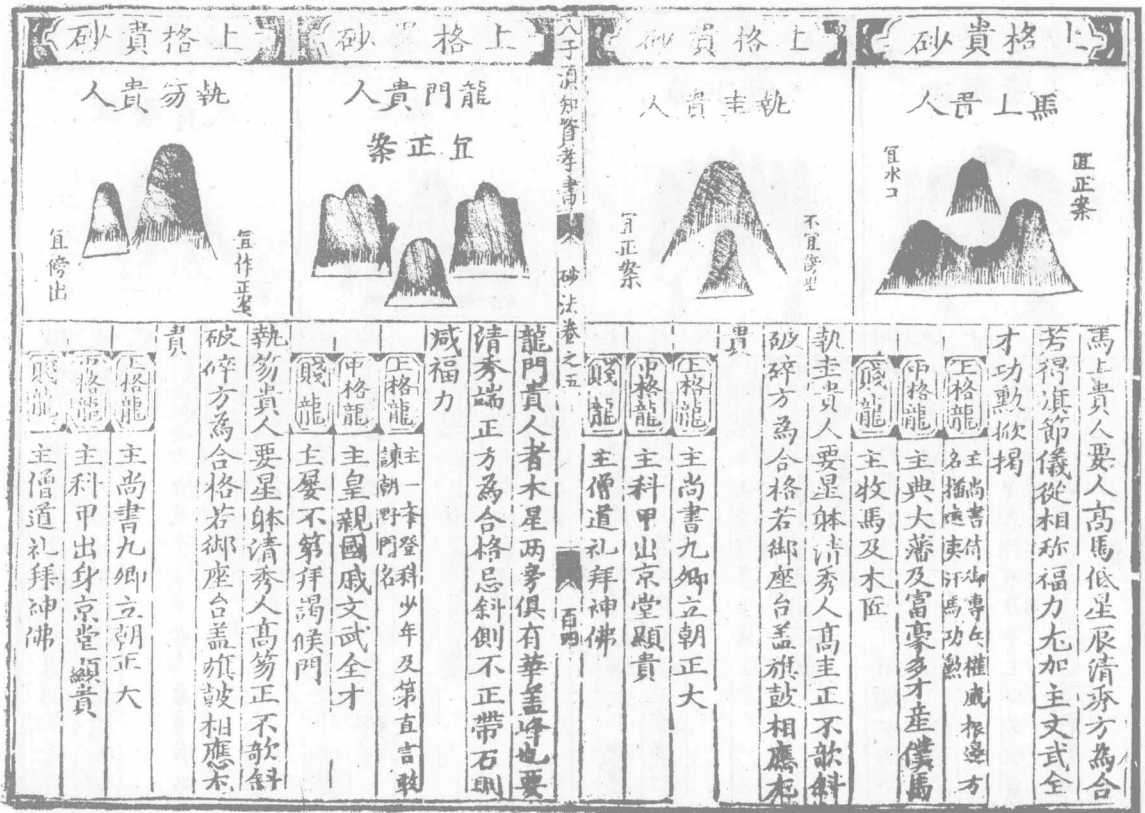 上格貴砂
馬上貴人
宜正案
宜水口
馬上貴人要人高馬低星辰清秀方為合
若得旗節儀從相称福力尤加主文武全
才功勳掀揭
上格龍
主尚書侍御專兵權威根邊方
名播遠夷汗馬功勲
中格龍
主典大藩及富豪多才産僕馬
賤龍
主牧馬及木匠
上格貴砂
執圭貴人
不宜傍出
宜正案
執圭貴人要星躰清秀人高圭正不欹斜
破碎方為合格若御座台盖旗鼓相應尤
貴
上格龍
主尚書九卿立朝正大
中格龍
主科甲出京堂顯貴
賤龍
主僧道礼拜神佛
人子須知資孝書
砂法卷之五
百四
上格貴砂
龍門貴人
宜正案
龍門貴人者木星两旁俱有華盖峰也要
清秀端正方為合格忌斜側不正帶石則
减福力
上格龍
主一舉登科少年及第直言敢
諫朝野聞名
中格龍
主皇親國戚文武全才
賤龍
主屢不第拜謁候門
上格貴砂
執笏貴人
宜作正案
宜傍出
執笏貴人要星躰清秀人高笏正不欹斜
破碎方為合格若御座台盖旗鼓相應尤
貴
上格龍
主尚書九卿立朝正大
中格龍
主科甲出身京堂顯貴
賤龍
主僧道礼拜神佛